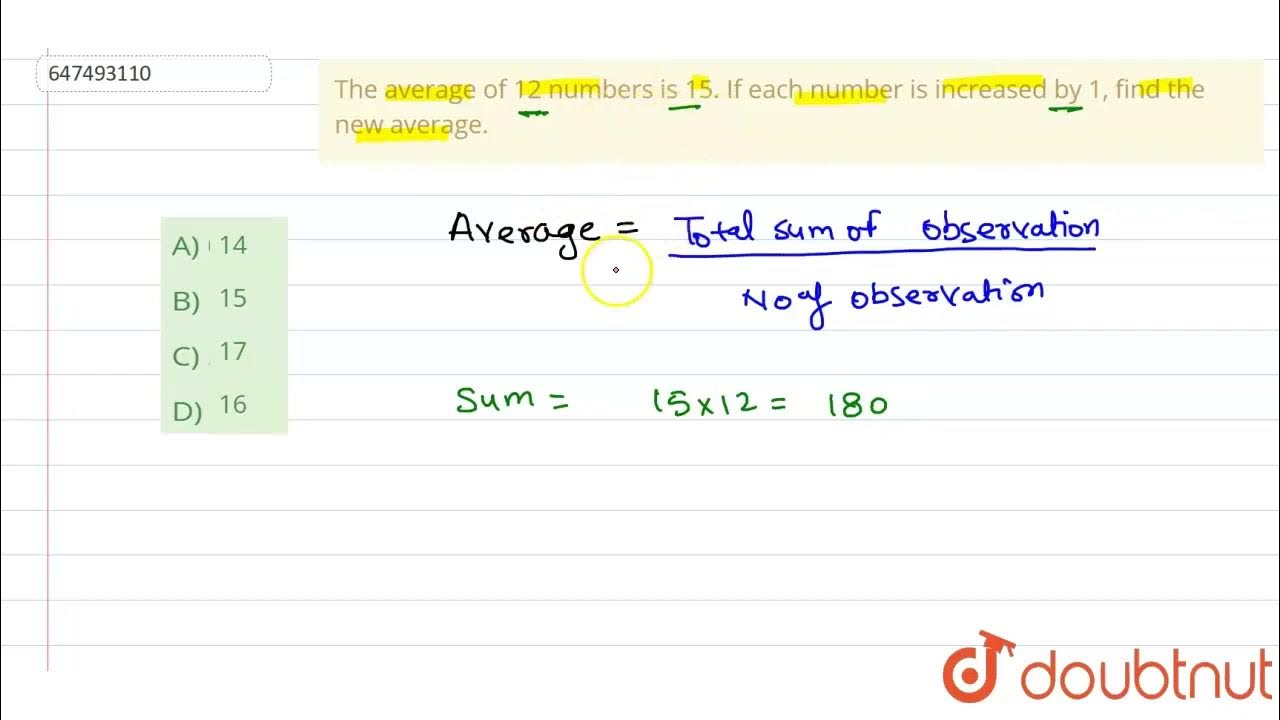 647493110
The average of 12 numbers is 15. If each number is increased by 1, find the
new average.
Average = Total sum of observation
No of observation
A) 14
B) 15
C) 17
D) 16
Sum = 15x12 = 180
doubtnut